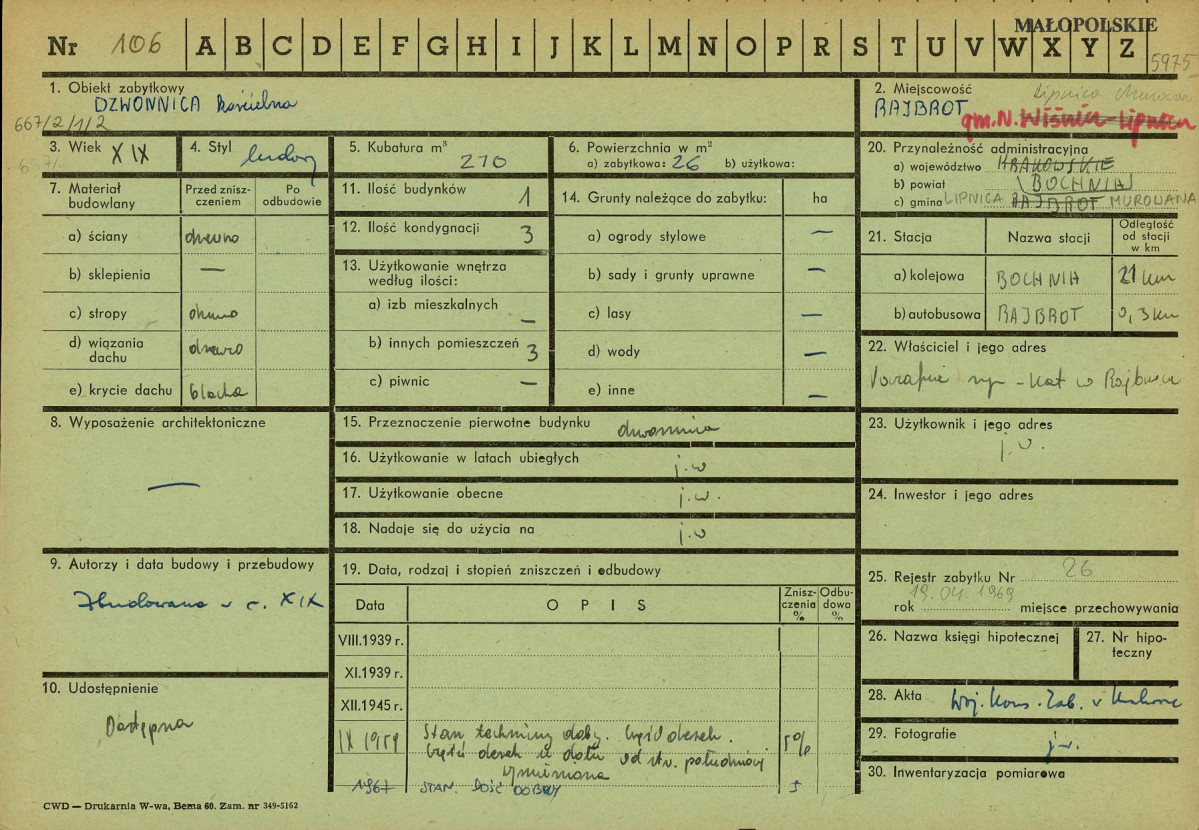 MAŁOPOLSKIE
Nr 106 A B C D E F G H I J K L M N O P R S T U V W X Y Z
5975
1. Obiekt zabytkowy
DZWONNICA kościelna
667/2/1/2
2. Miejscowość
Lipnica Murowana
RAJBROT
gm. N. Wiśnicz - Lipnica
3. Wiek XIX
4. Styl ludowy
5. Kubatura m³ 210
6. Powierzchnia w m²
a) zabytkowa: 26 b) użytkowa:
7. Materiał budowlany
Przed zniszczeniem
Po odbudowie
a) ściany drewno
b) sklepienia —
c) stropy drewno
d) wiązania dachu drewno
e) krycie dachu blacha
11. Ilość budynków 1
12. Ilość kondygnacji 3
13. Użytkowanie wnętrza według ilości:
a) izb mieszkalnych —
b) innych pomieszczeń 3
c) piwnic —
14. Grunty należące do zabytku: ha
a) ogrody stylowe —
b) sady i grunty uprawne —
c) lasy —
d) wody —
e) inne —
20. Przynależność administracyjna
a) województwo KRAKOWSKIE
b) powiat BOCHNIA
c) gmina LIPNICA RAJBROT MUROWANA
21. Stacja Nazwa stacji Odległość od stacji w km
a) kolejowa BOCHNIA 21 km
b) autobusowa RAJBROT 0,3 km
22. Właściciel i jego adres
Parafia rzym-kat w Rajbrocie
8. Wyposażenie architektoniczne
—
15. Przeznaczenie pierwotne budynku dzwonnica
16. Użytkowanie w latach ubiegłych j.w
17. Użytkowanie obecne j.w.
18. Nadaje się do użycia na j.w
23. Użytkownik i jego adres
j.w.
24. Inwestor i jego adres
9. Autorzy i data budowy i przebudowy
Zbudowana w c. XIX
10. Udostępnienie
Dostępna
19. Data, rodzaj i stopień zniszczeń i odbudowy
Data OPIS Zniszczenia % Odbudowa %
VIII.1939 r.
XI.1939 r.
XII.1945 r.
IX 1959 Stan techniczny dobry. Część desek.
Część desek u dołu od str. południowej 5%
wymieniona
1967 STAN. DOŚĆ DOBRY 5
25. Rejestr zabytku Nr 26
19.04.1969
rok miejsce przechowywania
26. Nazwa księgi hipotecznej
27. Nr hipoteczny
28. Akta Woj. Kons. Zab. w Krakowie
29. Fotografie j.w.
30. Inwentaryzacja pomiarowa
CWD — Drukarnia W-wa, Bema 60. Zam. nr 349-5162